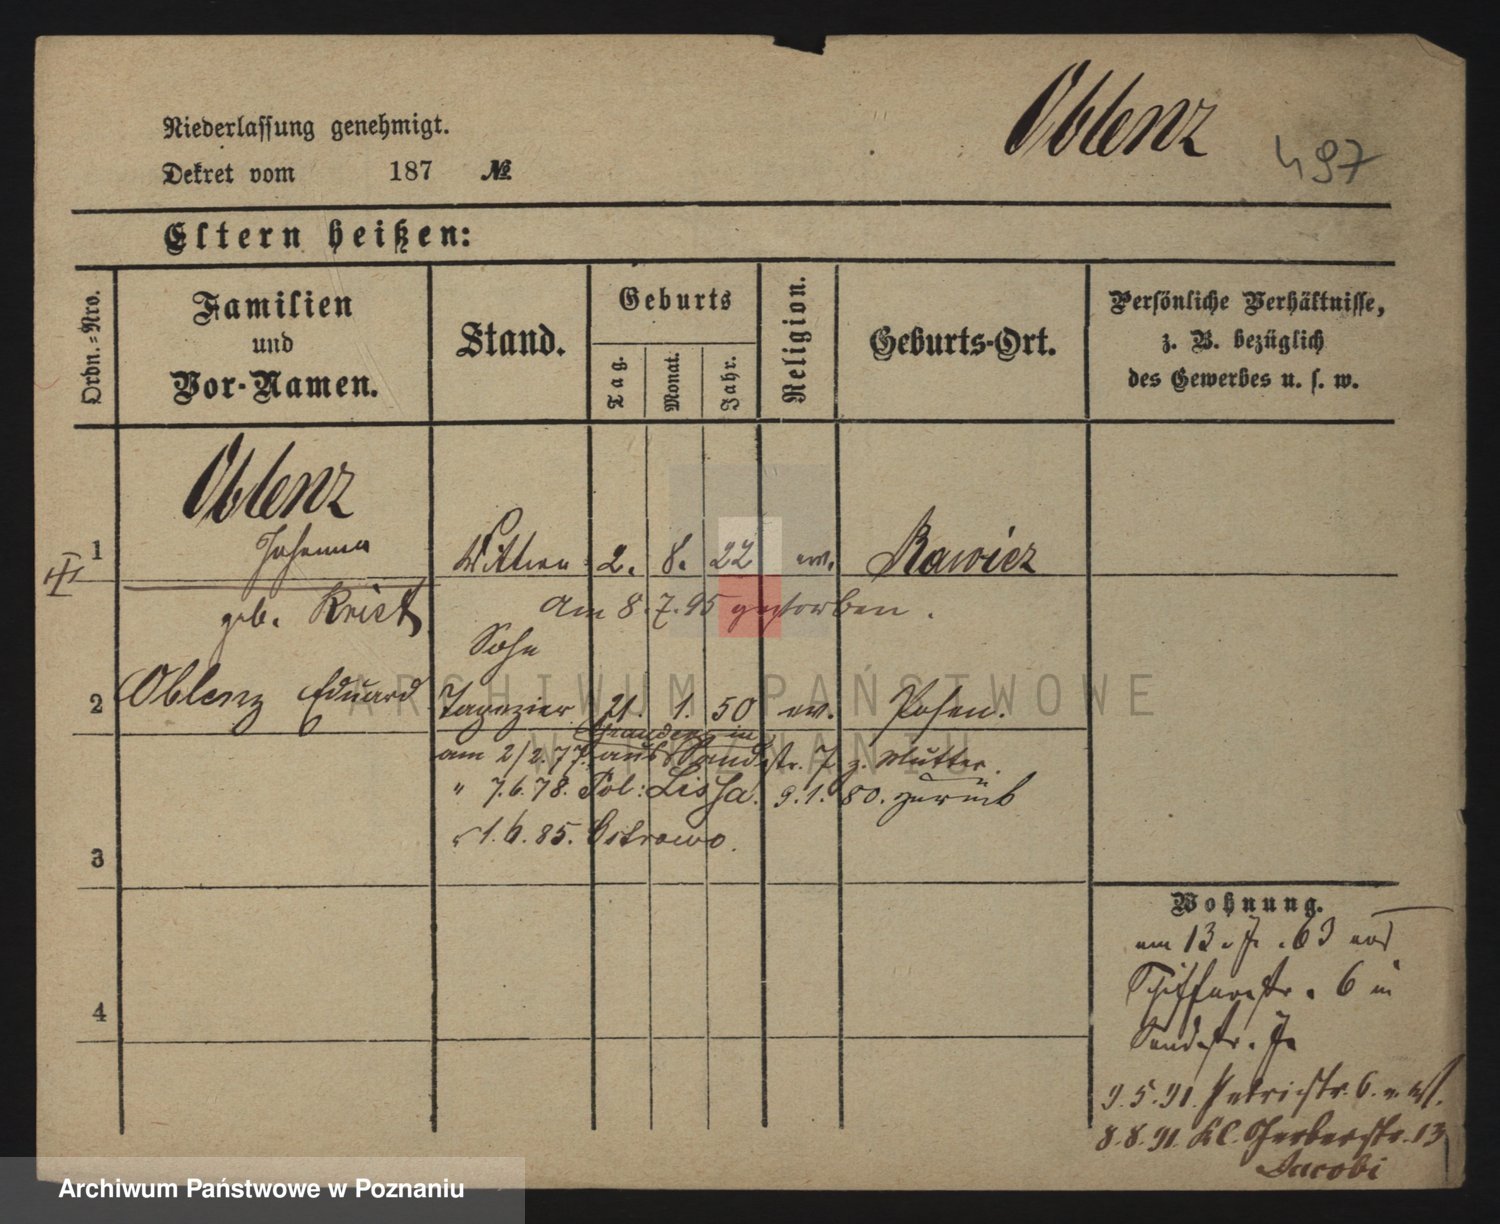 Oblenz
497
Niederlassung genehmigt.
Dekret vom 187 №
Eltern heißen:
Ordn.=Nro.
Familien
und
Vor-Namen.
Stand.
Geburts
Tag.
Monat.
Jahr.
Religion.
Geburts-Ort.
Persönliche Verhältnisse,
z. B. bezüglich
des Gewerbes u. s. w.
Oblenz
1 Johanna Wittwe 2. 8. 22 ev. Rawicz
geb. Krist
am 8.7.95 gestorben.
Sohn
2 Oblenz Eduard Tapezier 21. 1. 50 ev. Posen.
Graudenz in
am 2/2.77. aus Sandstr. 7 z. Mutter.
" 7.6.78. Pol: Lissa. 9.1.80. zurück
" 1.6.85. Ostrowo.
3
4
Wohnung.
am 13. 63 aus
Schifferstr. 6 in
Sandstr. 7
9.5.91. Petristr. 6.
8.8.91. Kl. Gerberstr. 13
Jacobi
ARCHIWUM PAŃSTWOWE
W POZNANIU
Archiwum Państwowe w Poznaniu